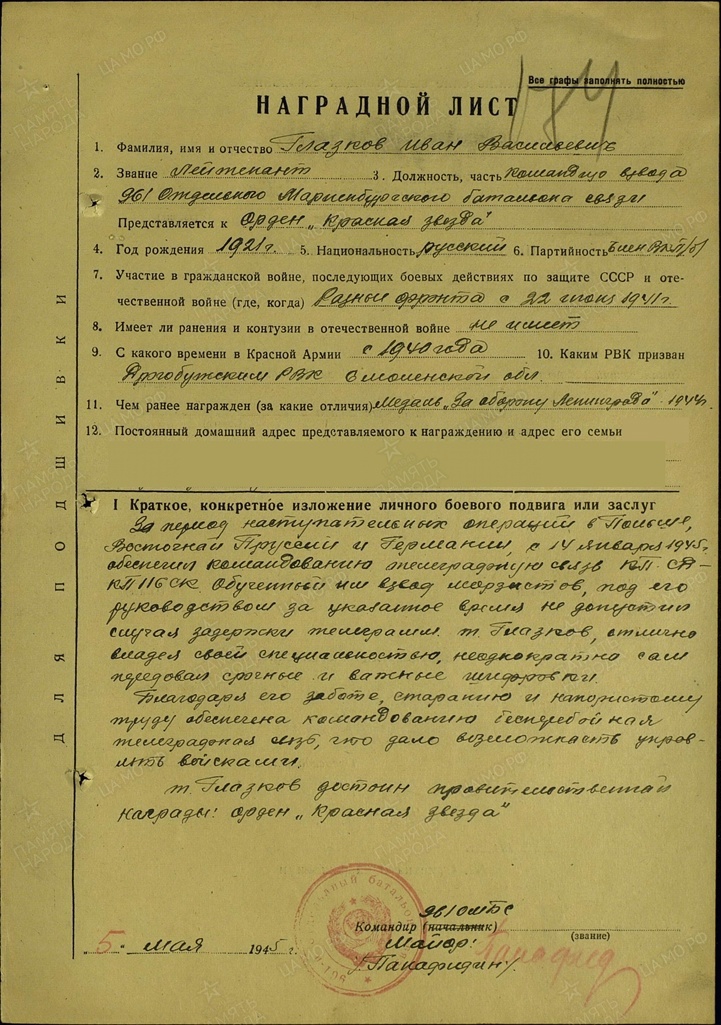 Все графы заполнять полностью
НАГРАДНОЙ ЛИСТ
1. Фамилия, имя и отчество Глазков Иван Васильевич
2. Звание Лейтенант 3. Должность, часть командир взвода
961 Отдельного Мариенбургского батальона связи
Представляется к орден „Красная звезда"
4. Год рождения 1921 г. 5. Национальность русский 6. Партийность Член ВКП/б/
7. Участие в гражданской войне, последующих боевых действиях по защите СССР и оте-
чественной войне (где, когда) фронта с 22 июня 1941 г.
8. Имеет ли ранения и контузии в отечественной войне не имеет
9. С какого времени в Красной Армии с 1940 года 10. Каким РВК призван
Дорогобужским РВК Смоленской обл.
11. Чем ранее награжден (за какие отличия) Медаль „За оборону Ленинграда" 1944 г.
12. Постоянный домашний адрес представляемого к награждению и адрес его семьи
I Краткое, конкретное изложение личного боевого подвига или заслуг
За период наступательных операций в Польше,
Восточной Пруссии и Германии, с 14 января 1945 г.
обеспечил командованию телеграфную связь КП
КП 116 СК. Обученный им взвод морзистов, под его
руководством за указанное время не допустил
случая задержки телеграмм. т. Глазков, отлично
владея своей специальностью, неоднократно сам
передовал срочные и важные шифровки.
Благодаря его заботе, старанию и напористому
труду обеспечена командованию бесперебойная
телеграфная связь, что дало возможность управ-
лять войсками.
т. Глазков достоин правительственной
награды: орден „Красная звезда"
961 ОМБС
Командир (начальник)
(звание)
„5" мая 1945 г.
Майор:
/Панафидин/
ДЛЯ ПОДШИВКИ
ПАМЯТЬ НАРОДА
ЦАМО.РФ